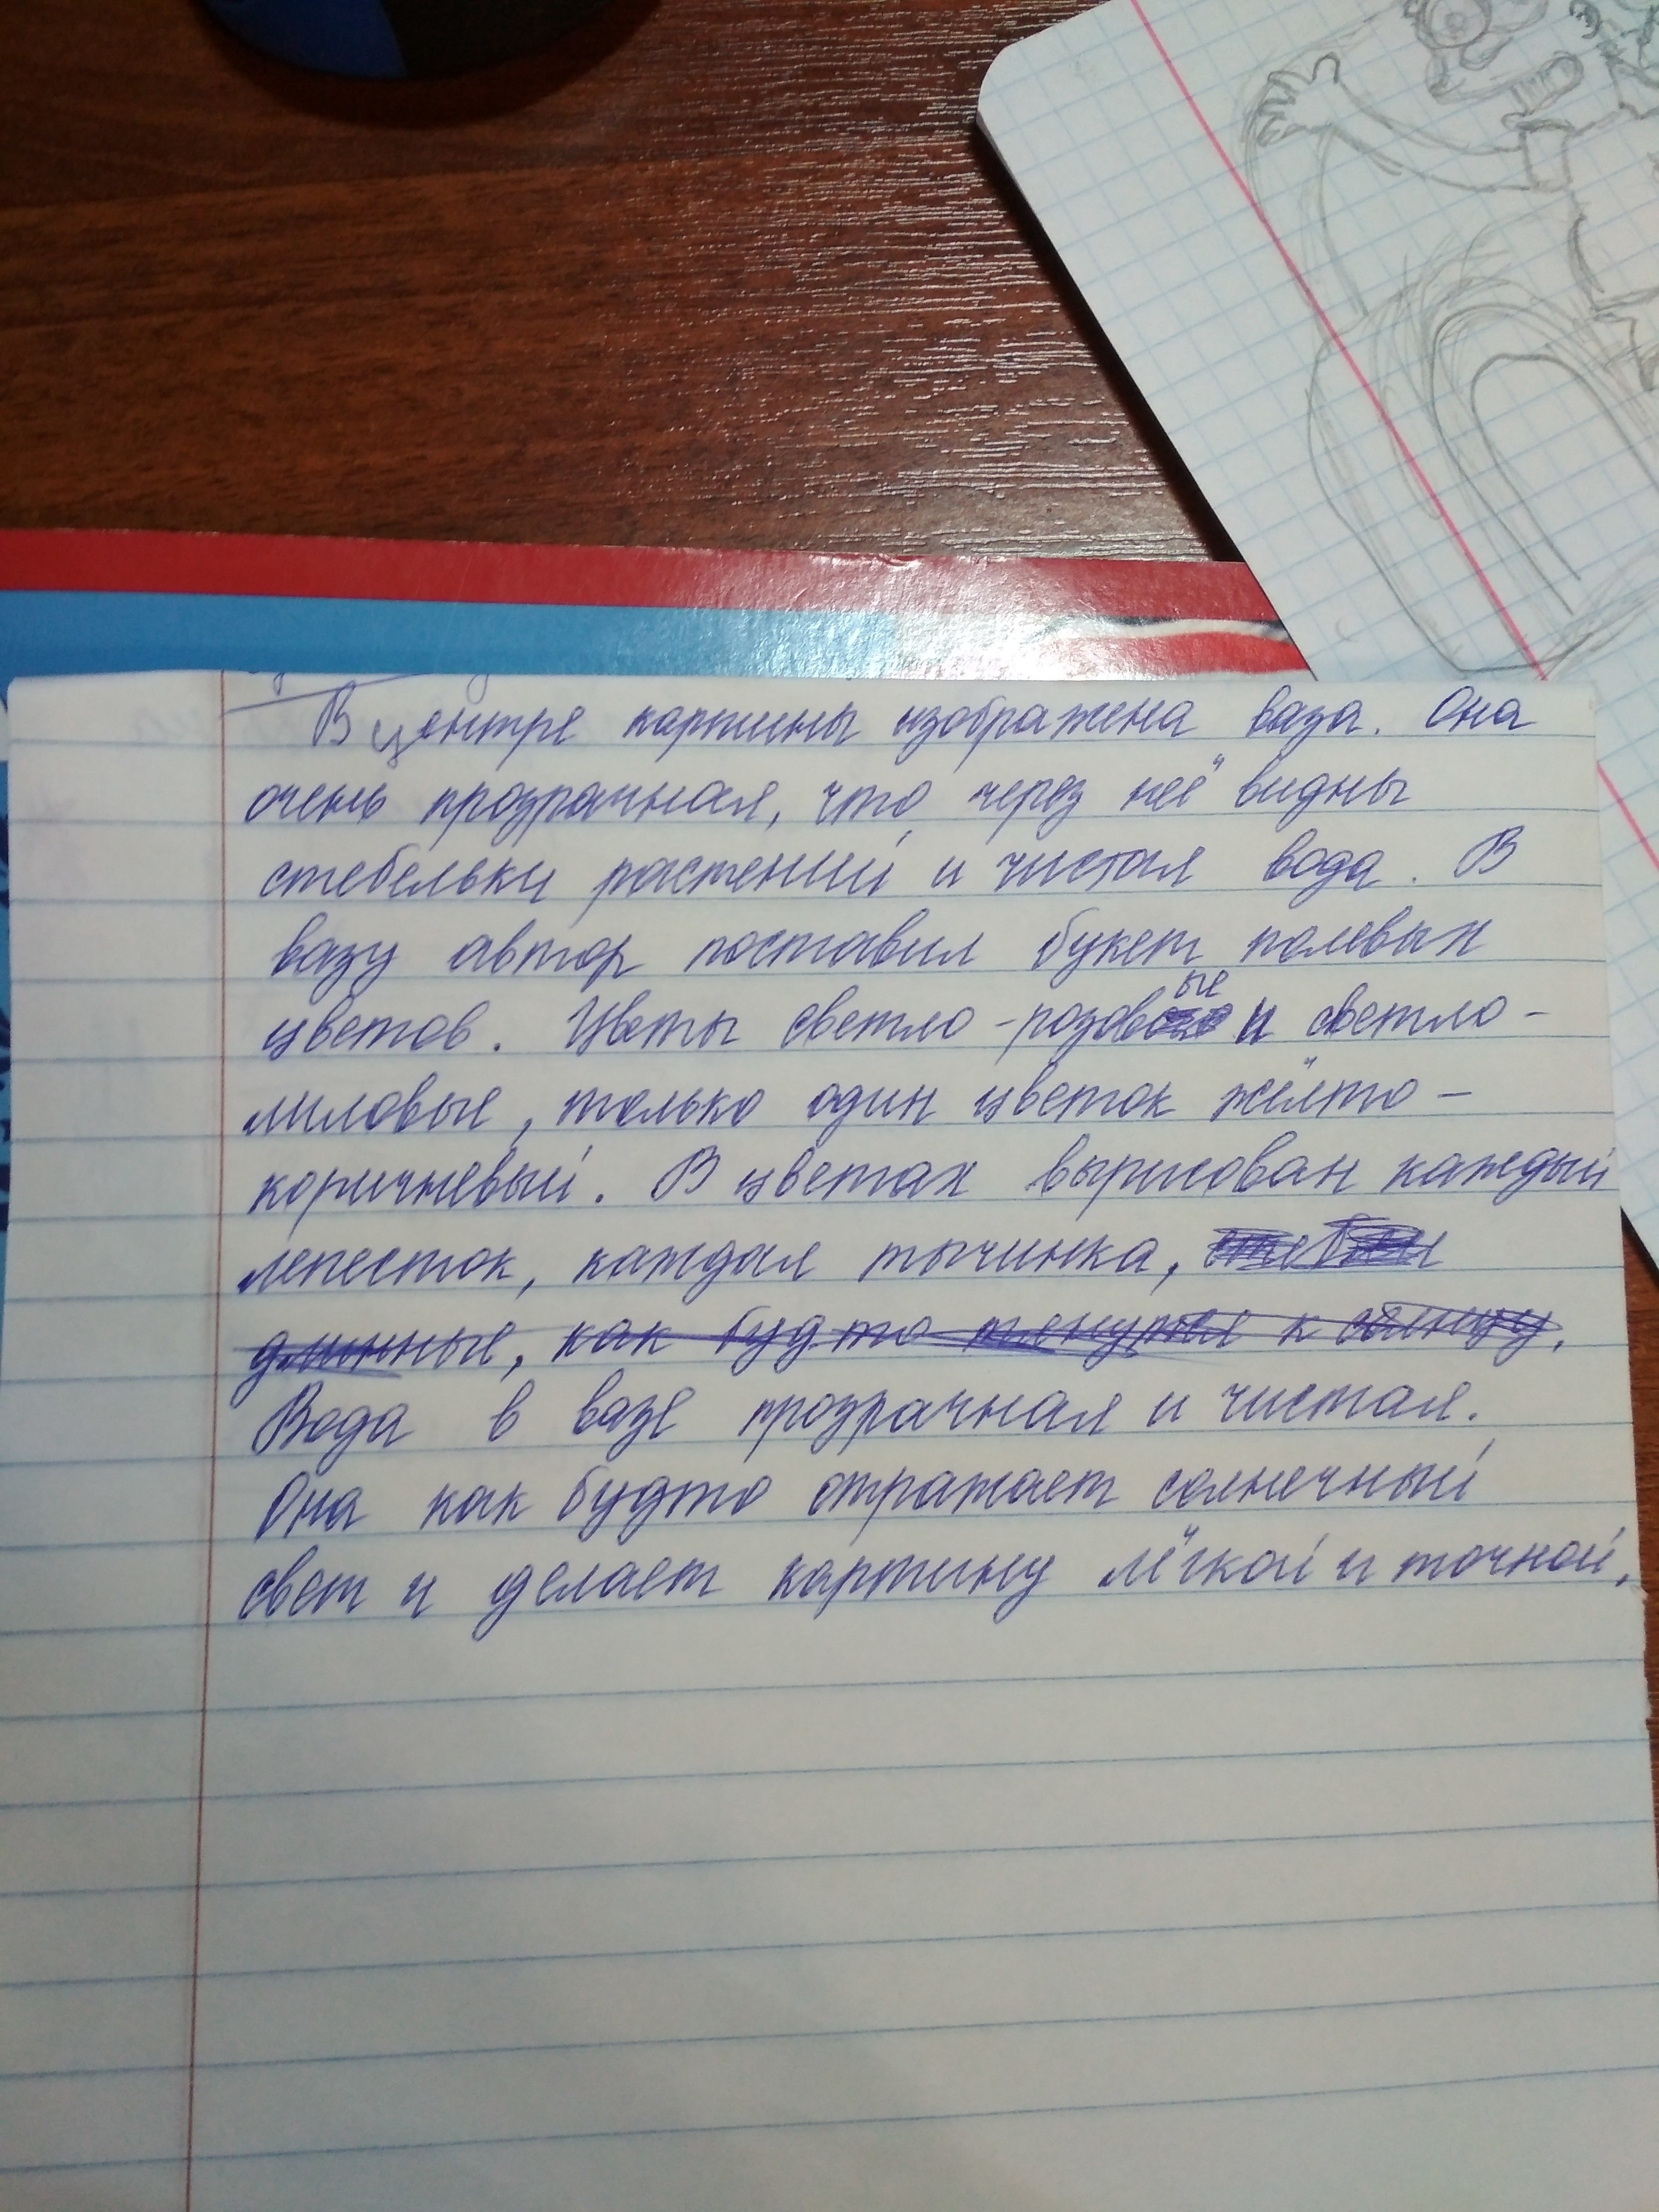 В центре картины изображена ваза. Она
очень прозрачная, что через неё видны
стебельки растений и чистая вода. В
вазу автор поставил букет полевых
цветов. Цветы светло-розовые и светло-
лиловые, только один цветок жёлто-
коричневый. В цветах вырисован каждый
лепесток, каждая тычинка,
длинные, как будто тянутся к солнцу.
Вода в вазе прозрачная и чистая.
Она как будто отражает солнечный
свет и делает картину лёгкой и точной.